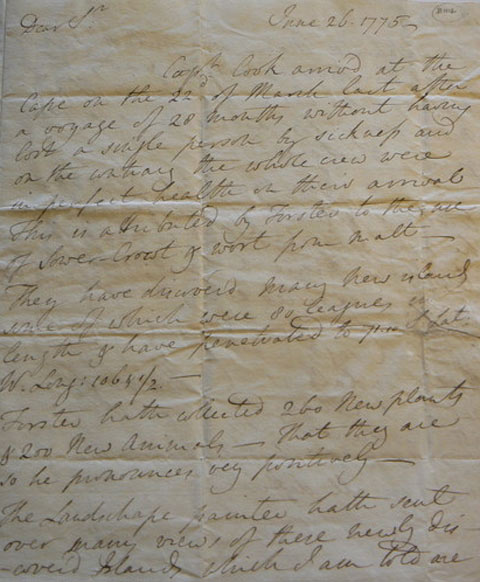 Dear Sr June 26. 1775
Capt Cook arrivd at the
Cape on the 22d of March last after
a voyage of 28 months without having
lost a single person by sickness and
on the contrary the whole crew were
in perfect health on their arrival
This is attributed by Forster to the use
of Sower-Crout & wort from Malt —
They have discoverd many New islands
some of which were 80 leagues in
length & have penetrated to Lat.
W. Long: 106° 1/2. —
Forster hath collected 260 New plants
& 200 New Animals — That they are
so he pronounces very positively —
The Landschape painter hath sent
over many views of these newly dis-
-coverd Islands which I am told are